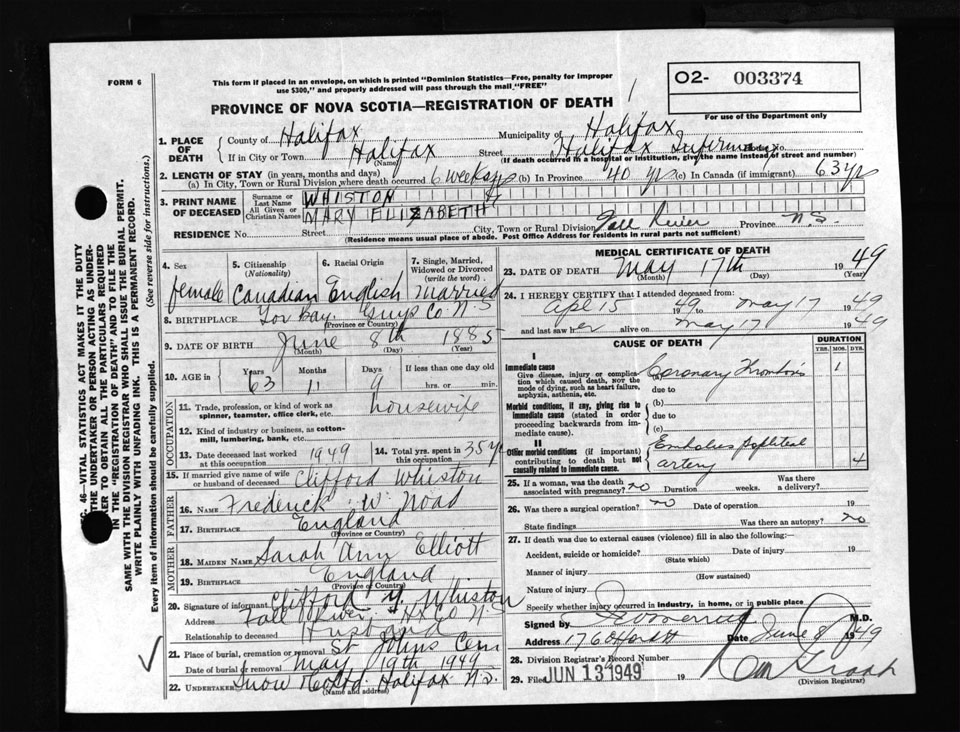 FORM 6
This form if placed in an envelope, on which is printed "Dominion Statistics—Free, penalty for improper
use $300," and properly addressed will pass through the mail "FREE"
O2- 003374
For use of the Department only
PROVINCE OF NOVA SCOTIA—REGISTRATION OF DEATH
1. PLACE OF DEATH County of Halifax Municipality of Halifax
If in City or Town Halifax (Name) Street Halifax Infirmary No.
(If death occurred in a hospital or institution, give the name instead of street and number)
2. LENGTH OF STAY (in years, months and days)
(a) In City, Town or Rural Division where death occurred 6 weeks (b) In Province 40 yrs (c) In Canada (if immigrant) 63 yrs
3. PRINT NAME OF DECEASED Surname or Last Name WHISTON
All Given or Christian Names MARY ELIZABETH
RESIDENCE No. Street City, Town or Rural Division Fall River Province N.S.
(Residence means usual place of abode. Post Office Address for residents in rural parts not sufficient)
4. Sex female
5. Citizenship (Nationality) Canadian
6. Racial Origin English
7. Single, Married, Widowed or Divorced (write the word) Married
8. BIRTHPLACE Tor Bay. Guys Co N.S
(Province or Country)
9. DATE OF BIRTH June 8th 1885
(Month) (Day) (Year)
10. AGE in Years 63 Months 11 Days 9 If less than one day old hrs. or min.
OCCUPATION
11. Trade, profession, or kind of work as spinner, teamster, office clerk, etc. housewife
12. Kind of industry or business, as cotton-mill, lumbering, bank, etc.
13. Date deceased last worked at this occupation 1949
14. Total yrs. spent in this occupation 35 yrs
15. If married give name of wife or husband of deceased Clifford Whiston
FATHER
16. Name Frederick W Noad
17. BIRTHPLACE England
(Province or Country)
MOTHER
18. MAIDEN NAME Sarah Ann Elliott
19. BIRTHPLACE England
(Province or Country)
20. Signature of informant Clifford Y. Whiston
Address Fall River, Hx Co N S
Relationship to deceased Husband
21. Place of burial, cremation or removal St Johns Cem
Date of burial or removal May 19th 1949
22. Undertaker Snow Co Ltd. Halifax N.S.
(Name and address)
MEDICAL CERTIFICATE OF DEATH
23. DATE OF DEATH May 17th 49
(Month) (Day) (Year)
24. I HEREBY CERTIFY that I attended deceased from:
Apl 15 1949 to May 17 1949
and last saw her alive on May 17 1949
CAUSE OF DEATH
DURATION
YRS. MOS. DYS.
I
Immediate cause
Give disease, injury or complication which caused DEATH, NOT the mode of dying, such as heart failure, asphyxia, asthenia, etc.
Coronary Thrombosis 1
due to
Morbid conditions, if any, giving rise to immediate cause (stated in order proceeding backwards from immediate cause).
(b)
due to
(c)
II
Other morbid conditions (if important) contributing to death but not causally related to immediate cause.
Embolus popliteal
artery 4
25. If a woman, was the death associated with pregnancy? no Duration weeks. Was there a delivery?
26. Was there a surgical operation? no Date of operation 19
State findings Was there an autopsy? no
27. If death was due to external causes (violence) fill in also the following:
Accident, suicide or homicide? Date of injury 19
(State which)
Manner of injury
(How sustained)
Nature of injury
Specify whether injury occurred in industry, in home, or in public place
Signed by M.D.
Address 176 Date June 8 1949
28. Division Registrar's Record Number
29. Filed JUN 13 1949 19
(Division Registrar)
SEC. 46—VITAL STATISTICS ACT MAKES IT THE DUTY
OF THE UNDERTAKER OR PERSON ACTING AS UNDER-
TAKER TO OBTAIN ALL THE PARTICULARS REQUIRED
IN THE "REGISTRATION OF DEATH" AND TO FILE THE
SAME WITH THE DIVISION REGISTRAR WHO SHALL ISSUE THE BURIAL PERMIT.
WRITE PLAINLY WITH UNFADING INK. THIS IS A PERMANENT RECORD.
Every item of information should be carefully supplied. (See reverse side for instructions.)